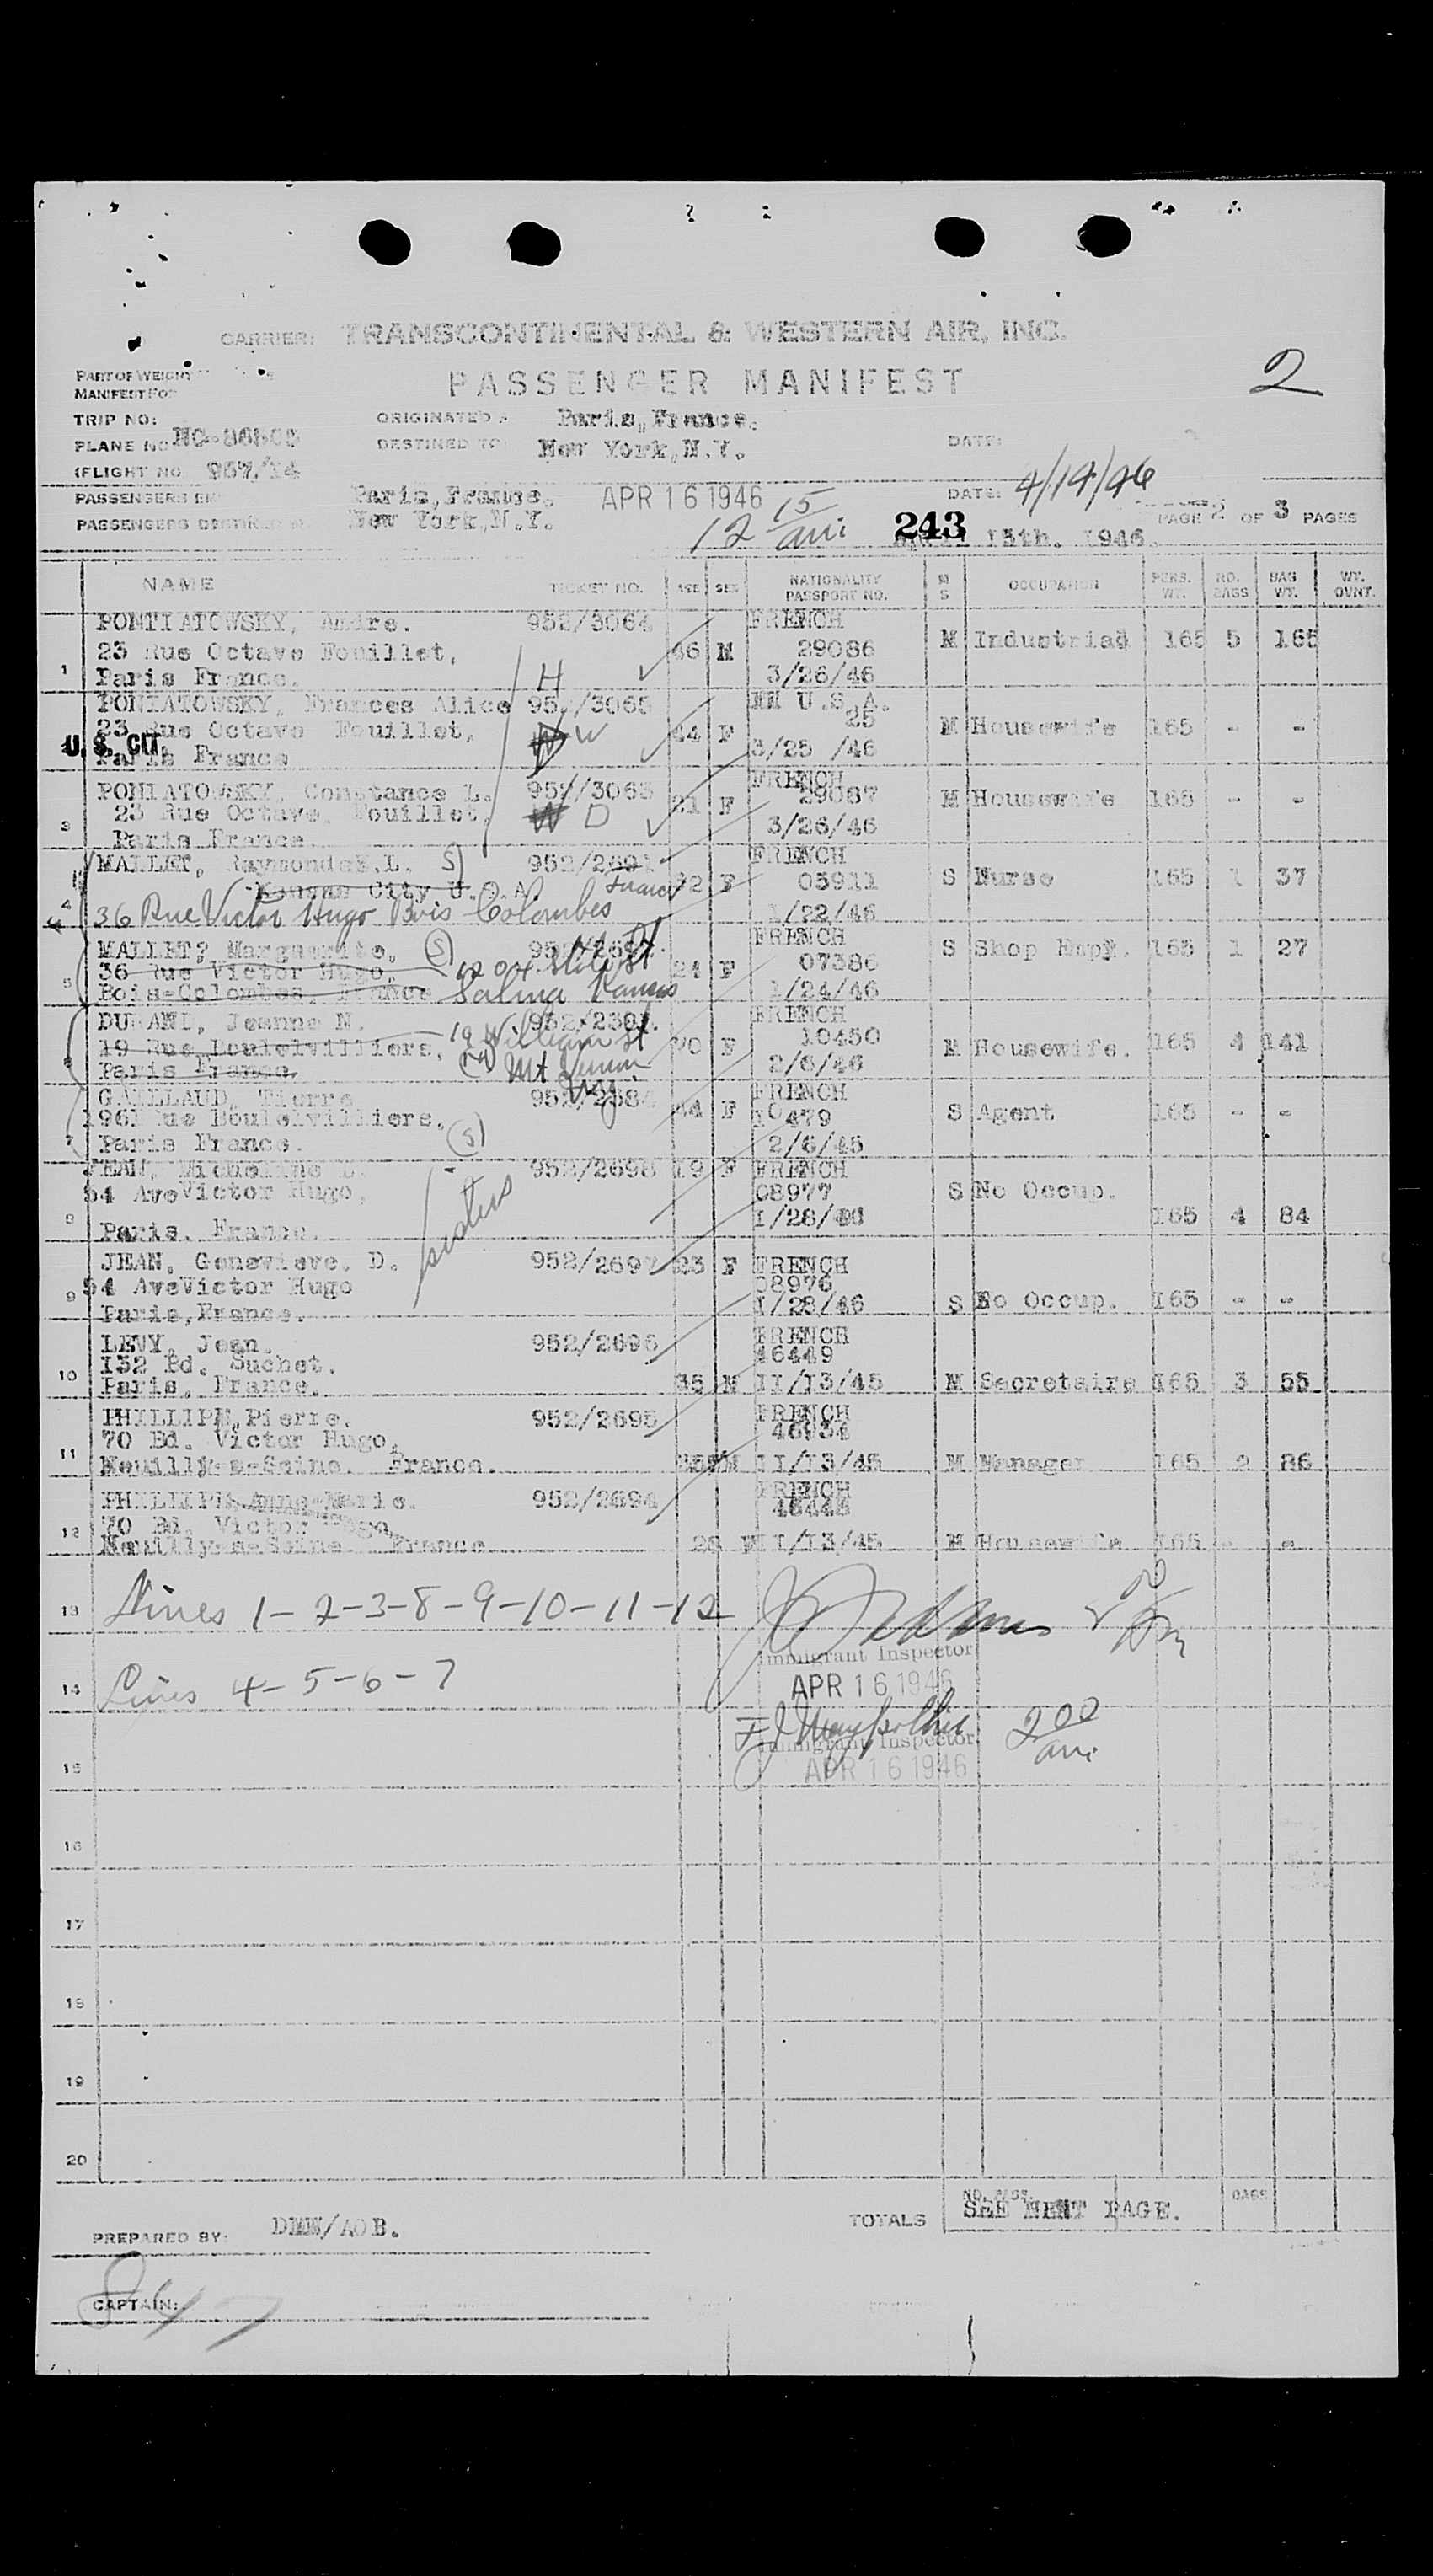 2
CARRIER: TRANSCONTINENTAL & WESTERN AIR, INC.
PASSENGER MANIFEST
PART OF WEIGHT
MANIFEST FOR
TRIP NO:
ORIGINATED Paris, France.
PLANE NO
DESTINED TO New York, N.Y.
DATE:
(FLIGHT NO 957/14
PASSENGERS Paris, France. APR 16 1946
DATE: 4/14/46
PASSENGERS New York, N.Y.
12 15 am
243 15th. 1946
PAGE 2 OF 3 PAGES
NAME TICKET NO. AGE SEX NATIONALITY PASSPORT NO. M S OCCUPATION PERS. WT. NO. BAGS BAG WT. WT. OVNT.
PONTIATOWSKY, Andre. 952/3064 FRENCH
23 Rue Octave Fouillet, 46 M 29086 M Industrial 165 5 165
1 Paris France. H 3/26/46
PONIATOWSKY, Frances Alice 952/3065 U.S.A.
23 Rue Octave Fouillet, W 44 F 25 M Housewife 165 - -
U.S. CIT. Paris France 3/25 /46
PONIATOWSKY, Constance L. 952/3065 FRENCH
23 Rue Octave Fouillet, D 21 F 29087 M Housewife 165 - -
3 Paris France. 3/26/46
MALLET, Raymonde L. S 952/2691 FRENCH
Kansas City U.S.A. France F 05911 S Nurse 165 1 37
4 36 Rue Victor Hugo Bois Colombes 1/22/46
MALLET? Marguerite, S FRENCH
36 Rue Victor Hugo, 24 F 07386 S Shop Empl. 165 1 27
5 Bois-Colombes, France Salina Kansas 1/24/46
DURAND, Jeanne N. FRENCH
19 Rue Boulelvilliers, 19 William St 70 F 10450 M Housewife. 165 4 141
Paris France. Mt Vernon 2/6/46
N.Y.
Pierre FRENCH
Rue Boulelvilliers, 44 F 10479 S Agent 165 - -
7 Paris France. S 2/6/45
JEAN, Micheline D. 952/2698 19 F FRENCH
54 Ave Victor Hugo, 08977 S No Occup.
8 Paris. France. sisters 1/28/46 165 4 84
JEAN, Genevieve. D. 952/2697 23 F FRENCH
54 AveVictor Hugo 08976
9 Paris, France. I/28/46 S No Occup. I65 - -
LEVY, Jean. 952/2696 FRENCH
I32 Bd. Suchet. 46449
10 Paris, France. 35 M II/I3/45 M Secretaire I65 3 55
PHILLIPE, Pierre. 952/2695 FRENCH
70 Bd. Victor Hugo, 46934
11 Neuilly-s-Seine. France. M II/I3/45 M Manager I65 2 86
PHILIPPE Anne-Marie. 952/2694 FRENCH
70 Bd. Victor Hugo 46448
12 Neuilly-s-Seine France 28 F II/I3/45 M Housewife I65 - -
13 Lines 1-2-3-8-9-10-11-12
Immigrant Inspector
14 Lines 4-5-6-7 APR 16 1946
2 00 am
Immigrant Inspector
15 APR 16 1946
16
17
18
19
20
TOTALS NO. PASS. SEE NEXT PAGE. BAGS
PREPARED BY:
CAPTAIN: